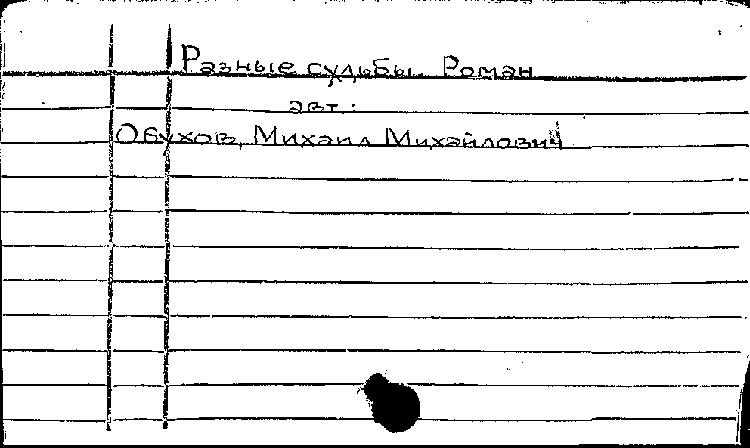 Разные судьбы. Роман
авт:
Обухов, Михаил Михайлович